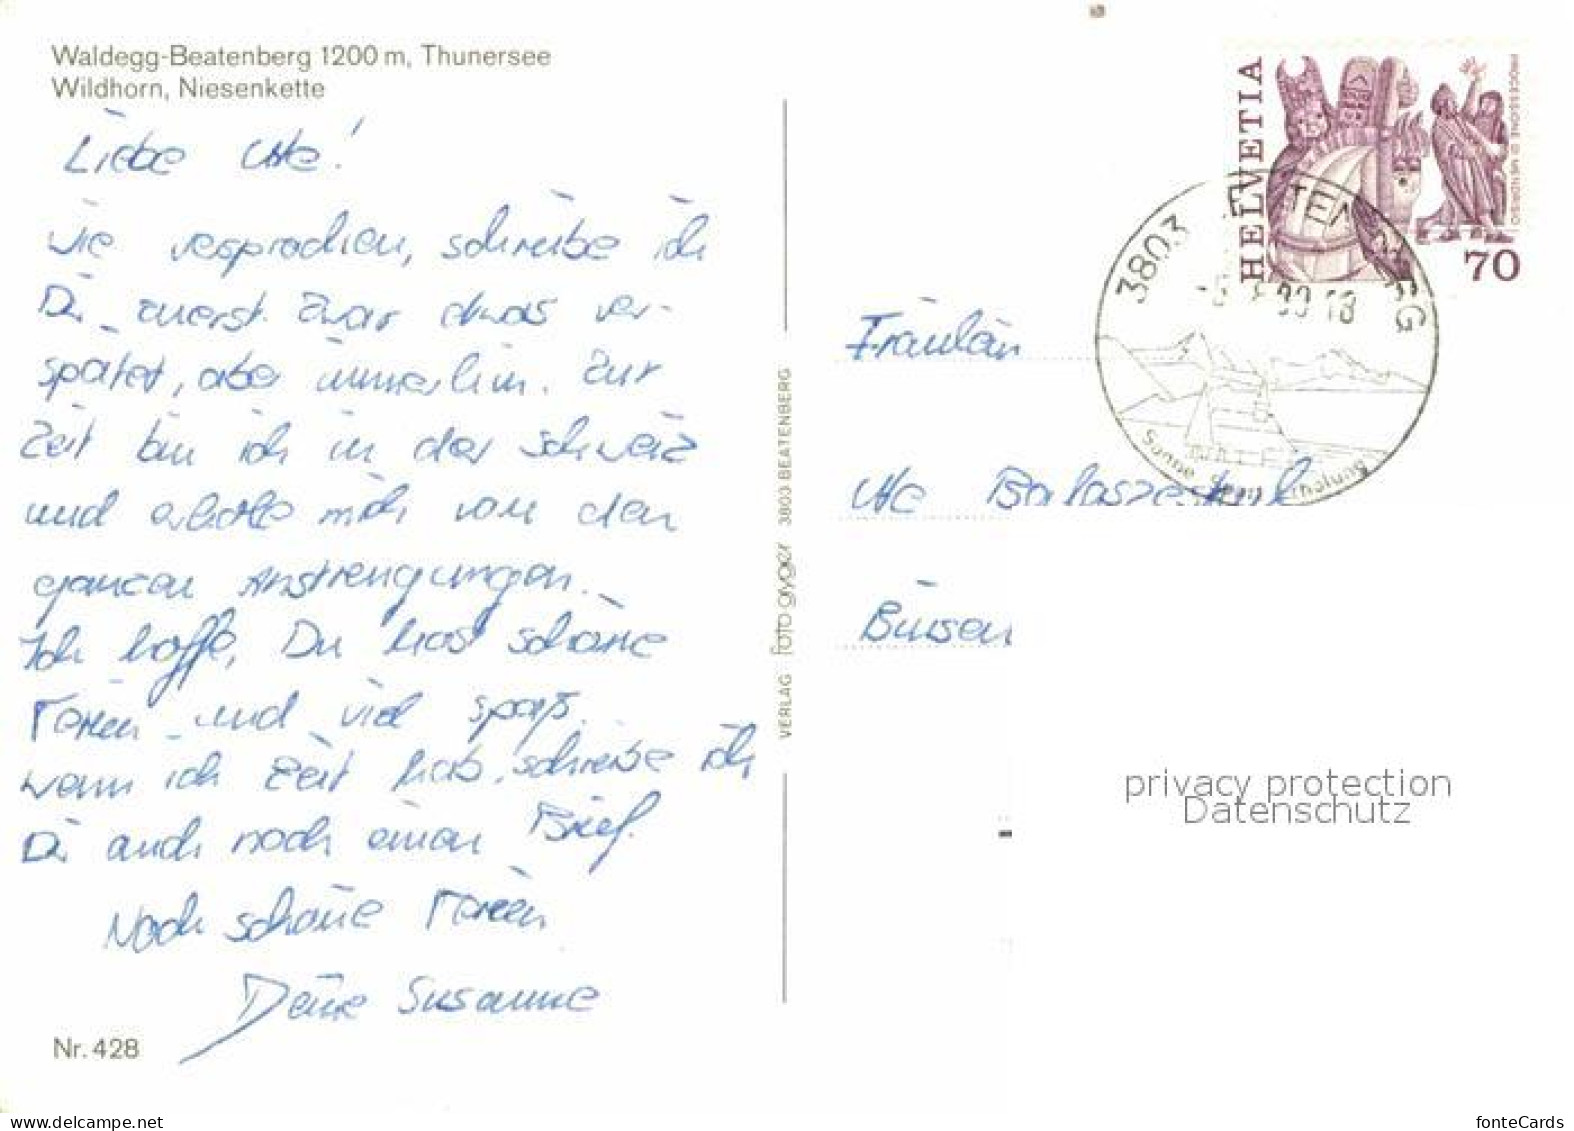 Waldegg-Beatenberg 1200 m, Thunersee
Wildhorn, Niesenkette
Liebe Ute!
Wie versprochen, schreibe ich
Dir zuerst. Zwar etwas ver-
spätet, aber immerhin. Zur
Zeit bin ich in der Schweiz
und erhole mich von den
ganzen Anstrengungen.
Ich hoffe, Du hast schöne
Ferien und viel Spaß.
Wenn ich Zeit hab, schreibe ich
Dir auch noch einen Brief.
Noch schöne Ferien
Deine Susanne
Nr. 428
VERLAG foto gyger 3803 BEATENBERG
HELVETIA
PROCESSIONE DI MENDRISIO
70
3803 BEATENBERG
Sonne Sport Erholung
Fräulein
Ute
Büren
privacy protection
Datenschutz
fonteCards